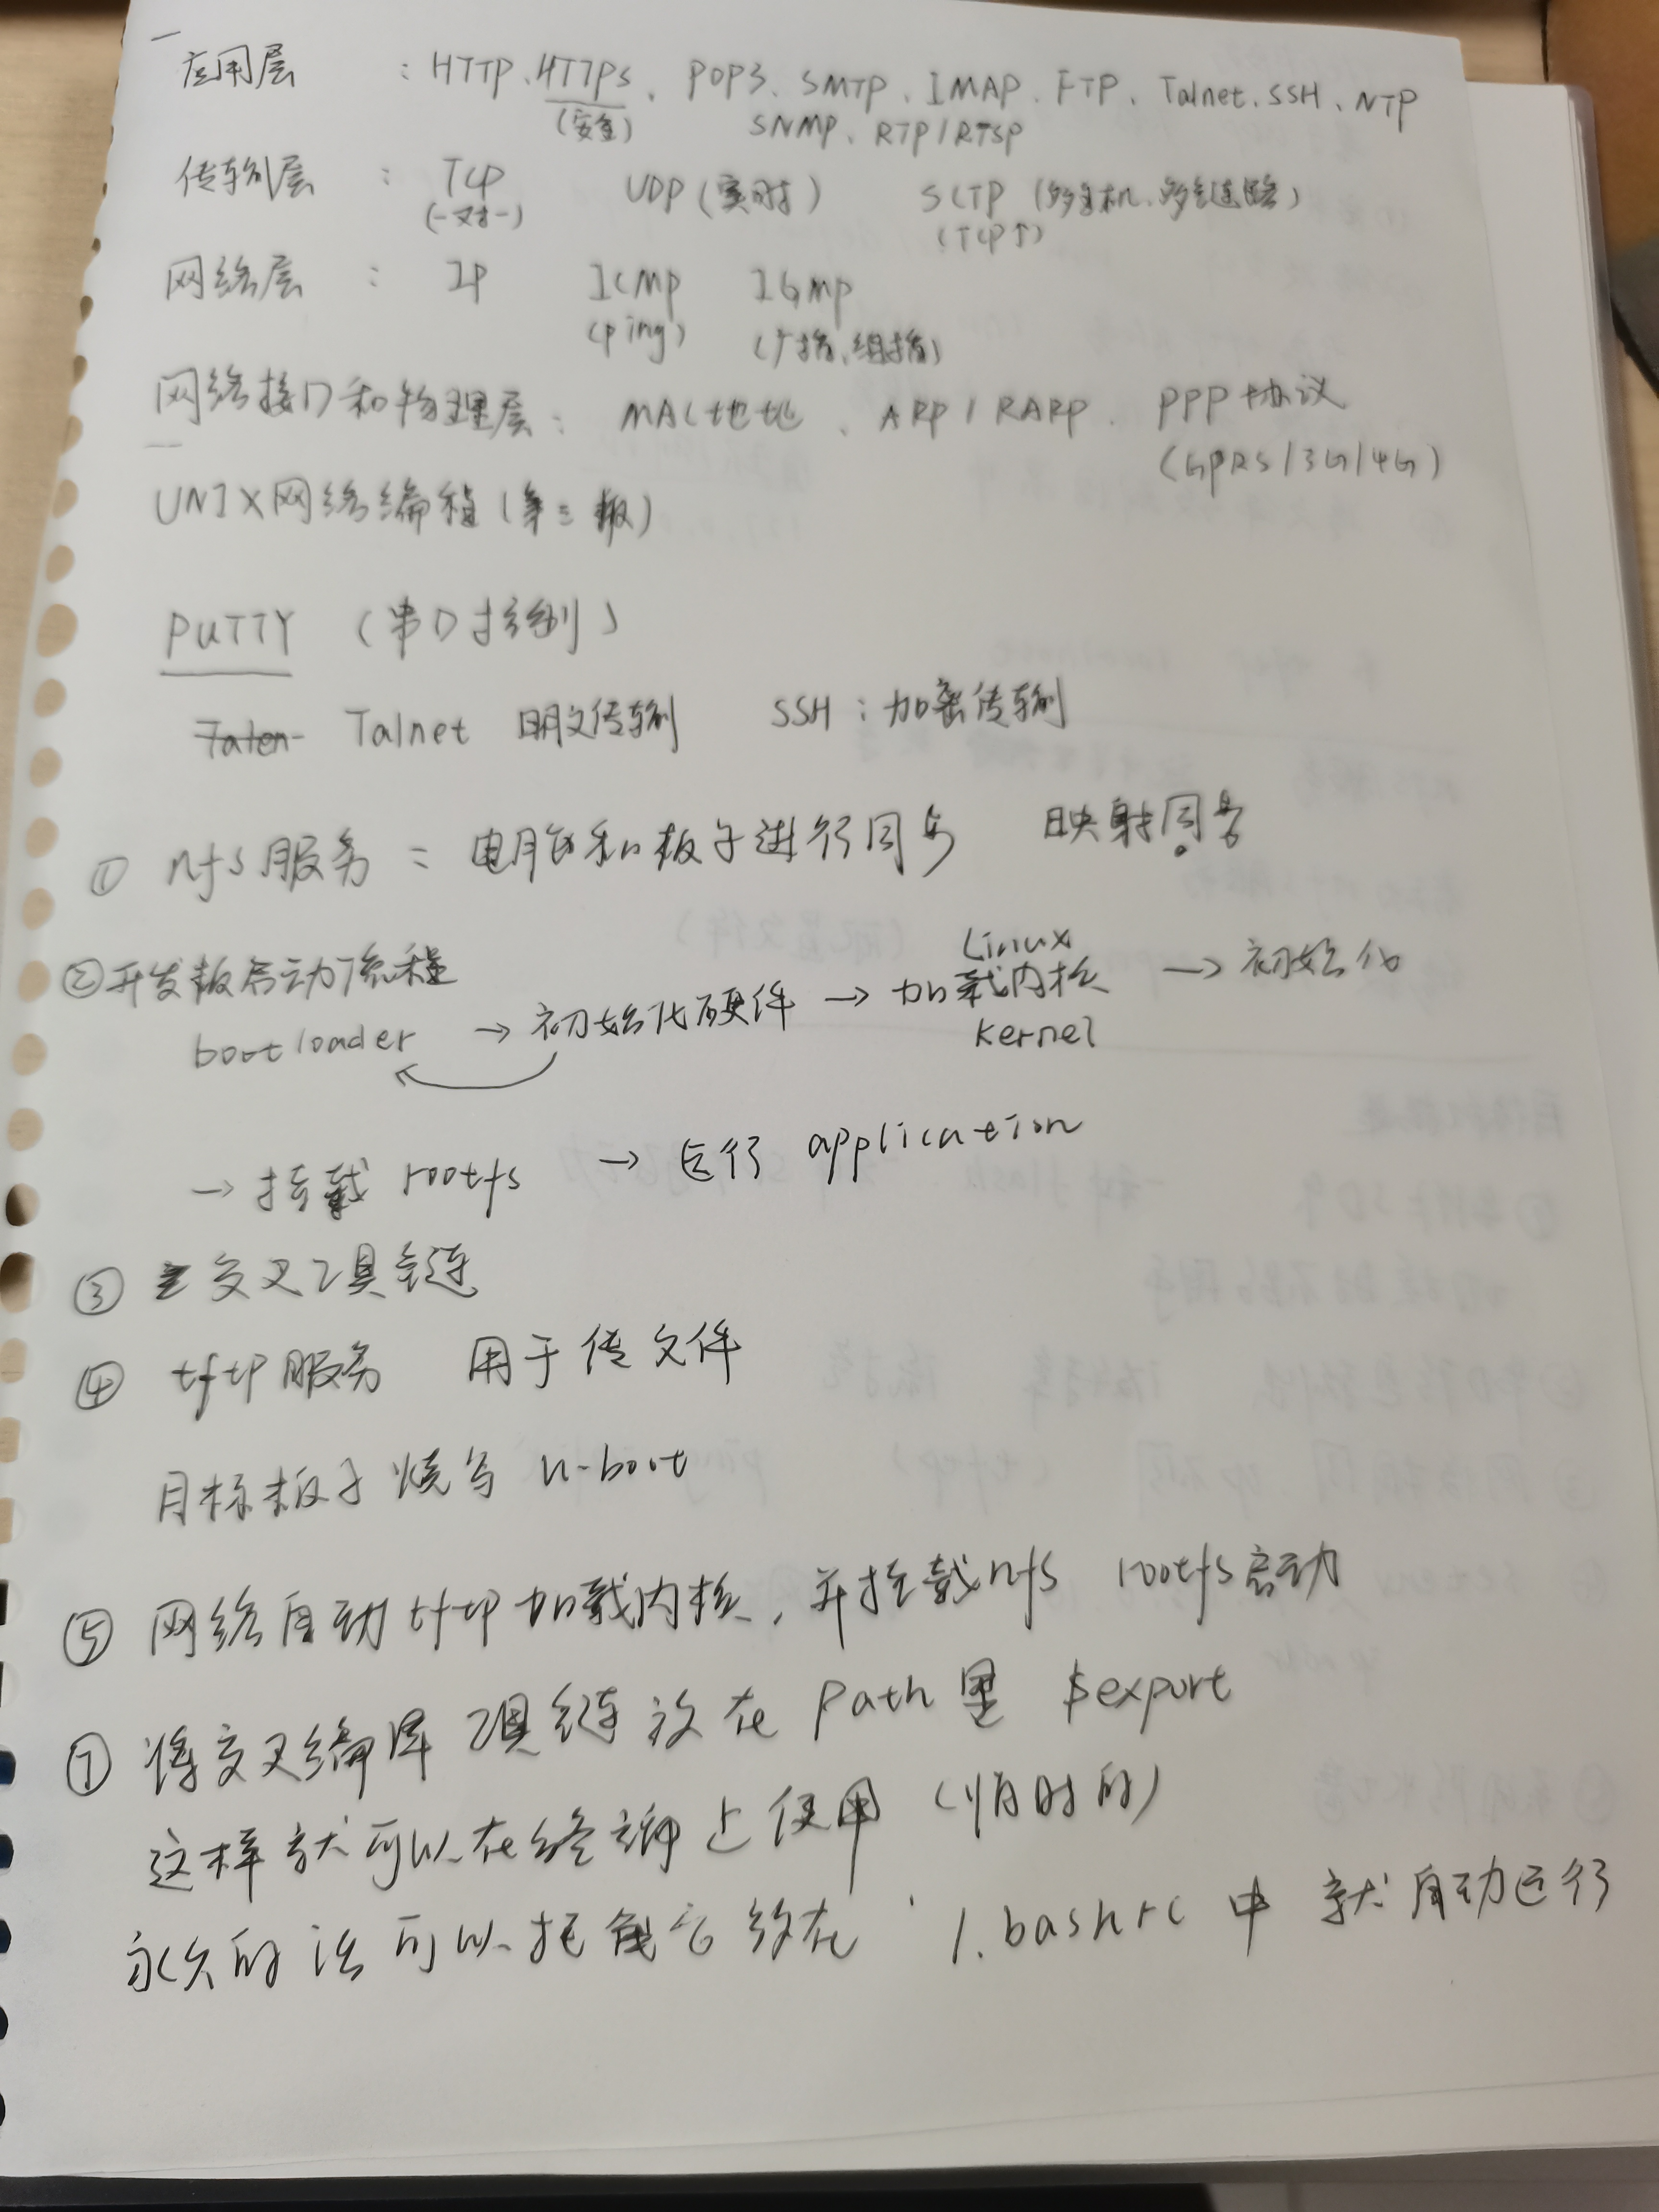 应用层 : HTTP、HTTPS、POP3、SMTP、IMAP、FTP、Talnet、SSH、NTP
(安全) SNMP、RTP/RTSP
传输层 : TCP UDP(实时) SCTP(多主机、多链路)
(一对一) (TCP↑)
网络层 : IP ICMP IGMP
(ping) (广播、组播)
网络接口和物理层: MAC地址、ARP/RARP、PPP协议
(GPRS/3G/4G)
UNIX网络编程(第三版)
PUTTY (串口控制)
Talen Talnet 明文传输 SSH:加密传输
① nfs服务 = 电脑和板子进行同步 映射同步
②开发板启动流程
bootloader → 初始化硬件 → 加载内核 Linux kernel → 初始化
→ 挂载 rootfs → 运行 application
③ 交叉工具链
④ tftp服务 用于传文件
目标板子烧写 u-boot
⑤ 网络自动tftp加载内核,并挂载nfs rootfs启动
⑦ 将交叉编 工具链放在Path里 $export
这样就可以在终端上使用(临时的)
永久的话可以把命令放在 /.bashrc 中 就自动运行